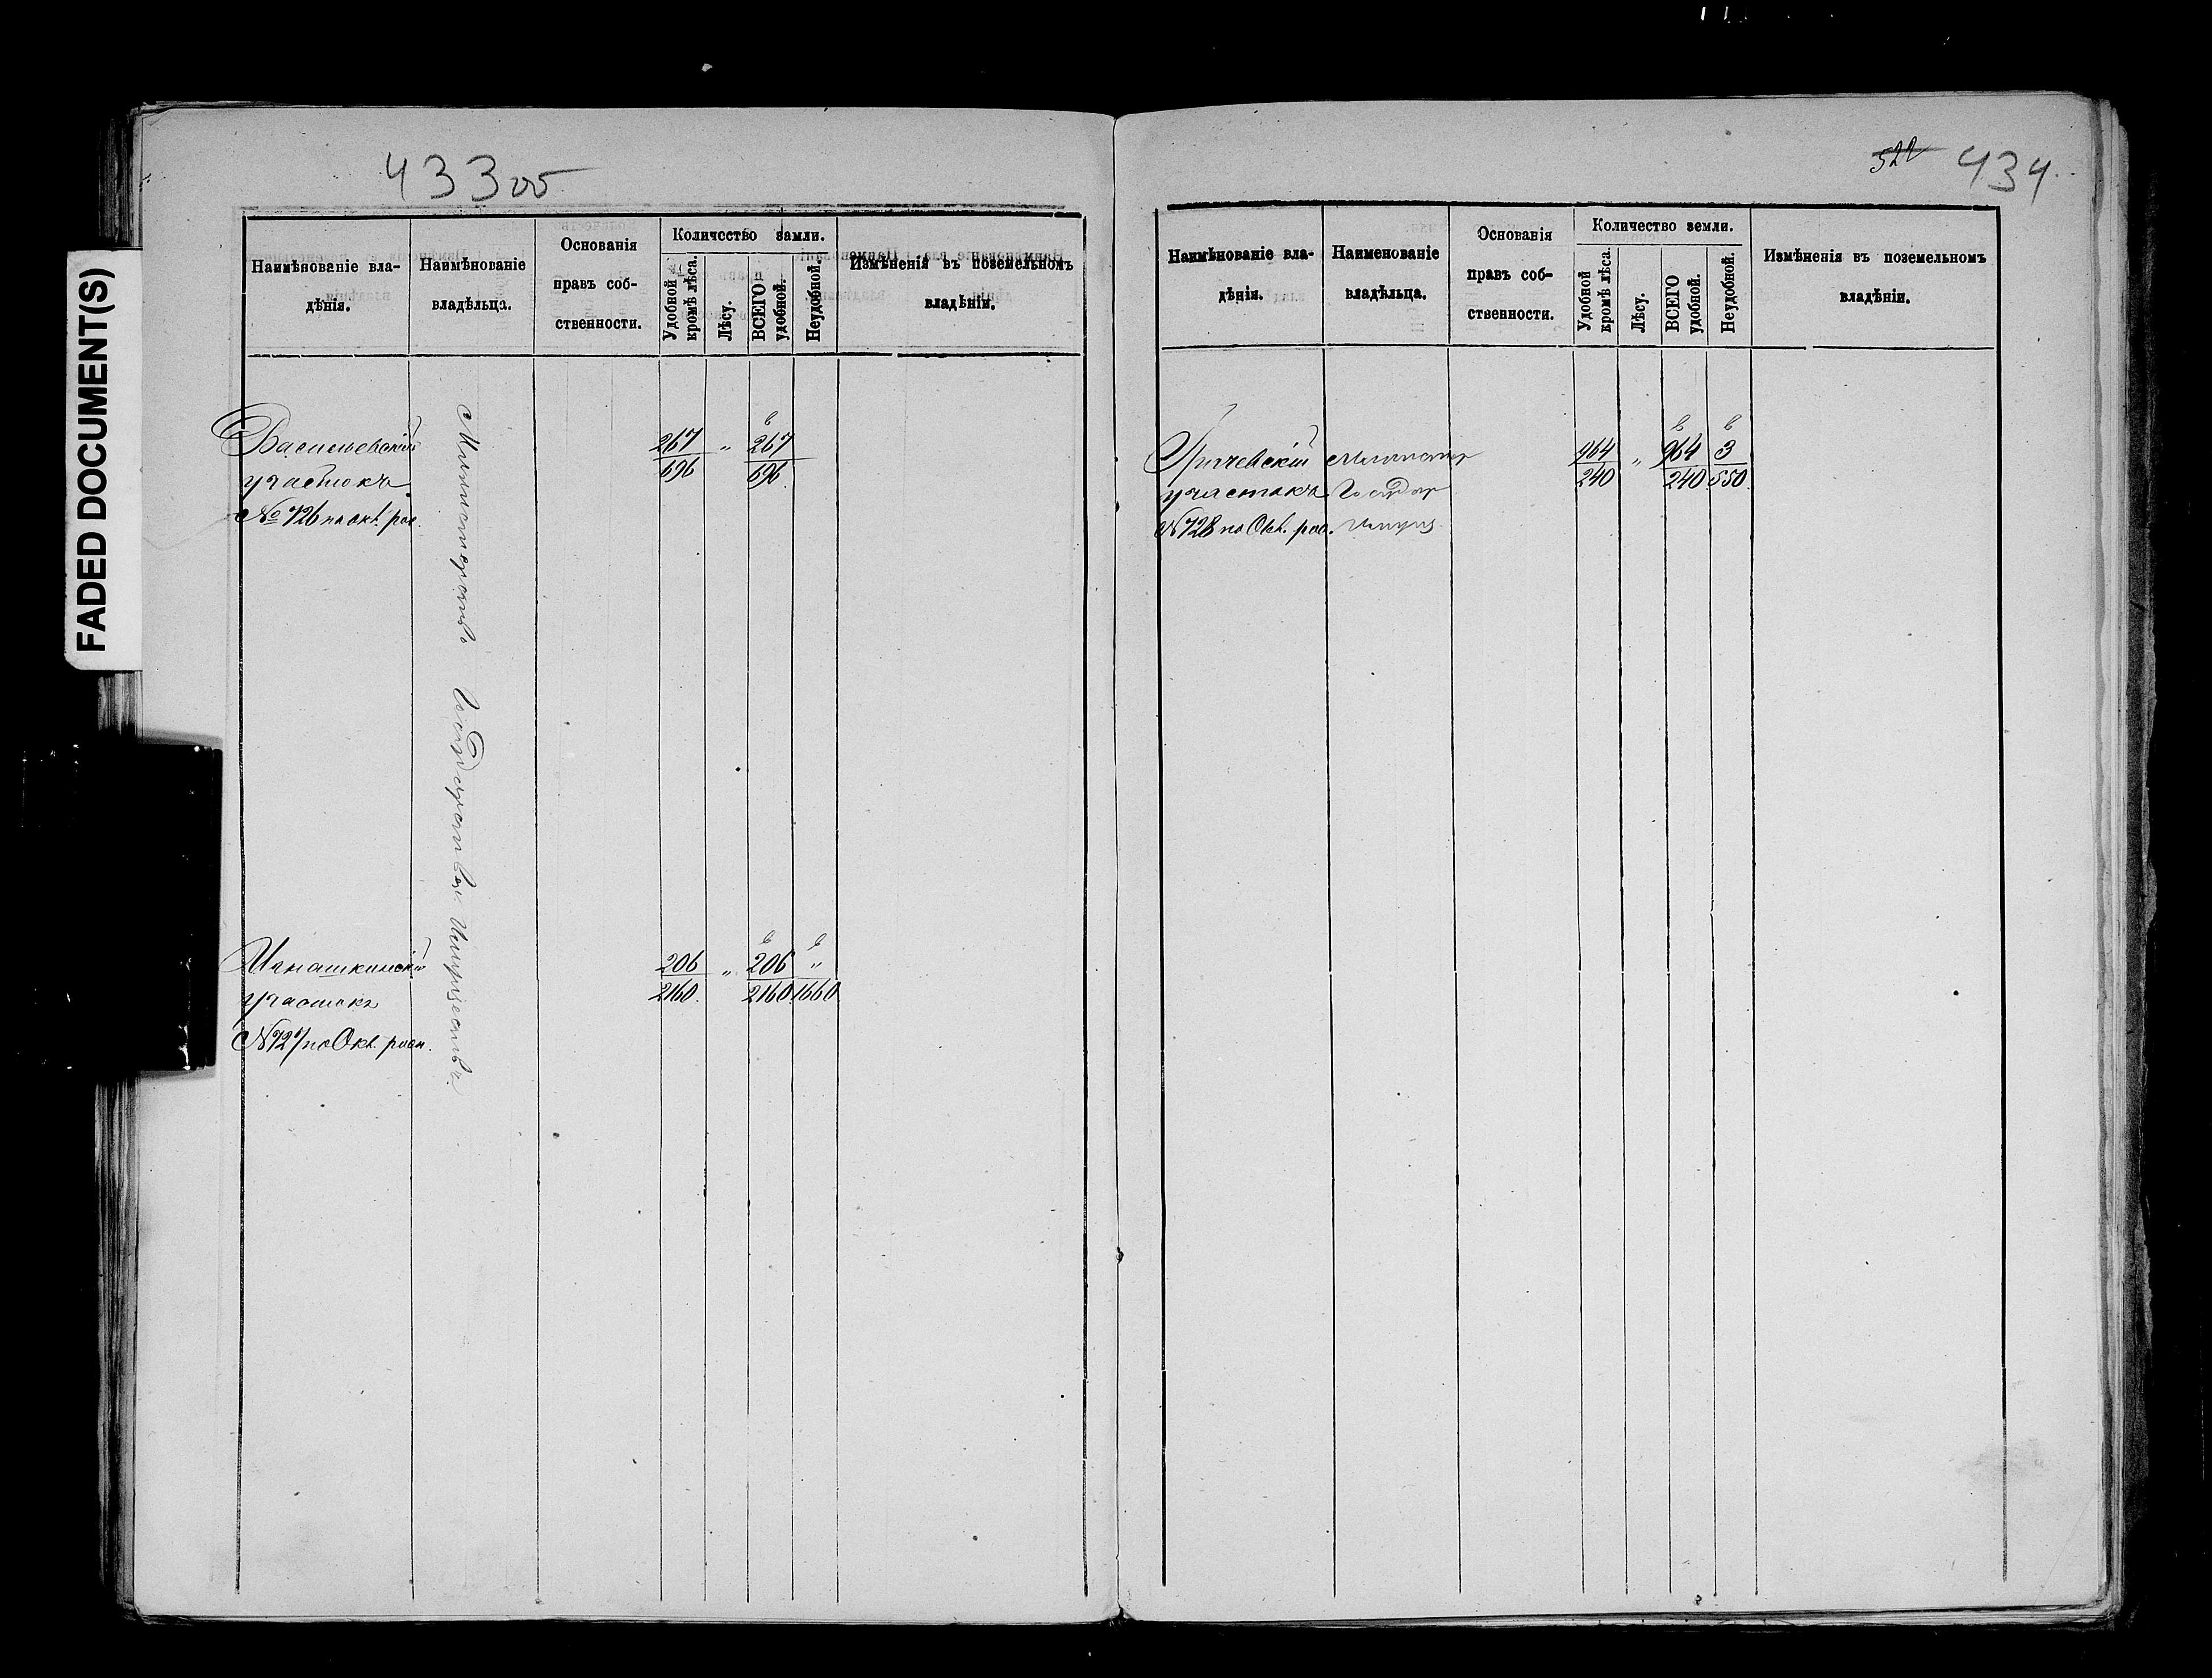 FADED DOCUMENT(S)
433об
Наимѣнованіе вла-
дѣнія.
Наимѣнованіе
владѣльца.
Основанія
правъ соб-
ственности.
Количество земли.
Удобной
кромѣ лѣса.
Лѣсу.
ВСЕГО
удобной.
Неудобной.
Измѣненія въ поземельномъ
владѣніи.
Васильевскій
участокъ
№ 726 по окл. рос.
Министерство Государственныхъ Имуществъ
267 " 267
696 696
участокъ
№727 по Окл. росп.
206 " 206 "
2160. 2160. 1660
522 434
Наимѣнованіе вла-
дѣнія.
Наименованіе
владѣльца.
Основанія
правъ соб-
ственности.
Количество земли.
Удобной
кромѣ лѣса.
Лѣсу.
ВСЕГО
удобной.
Неудобной.
Измѣненія въ поземельномъ
владѣніи.
участокъ Государ
№728 по Окл. рос. Имущ
964 " 964 3
240 240 550.